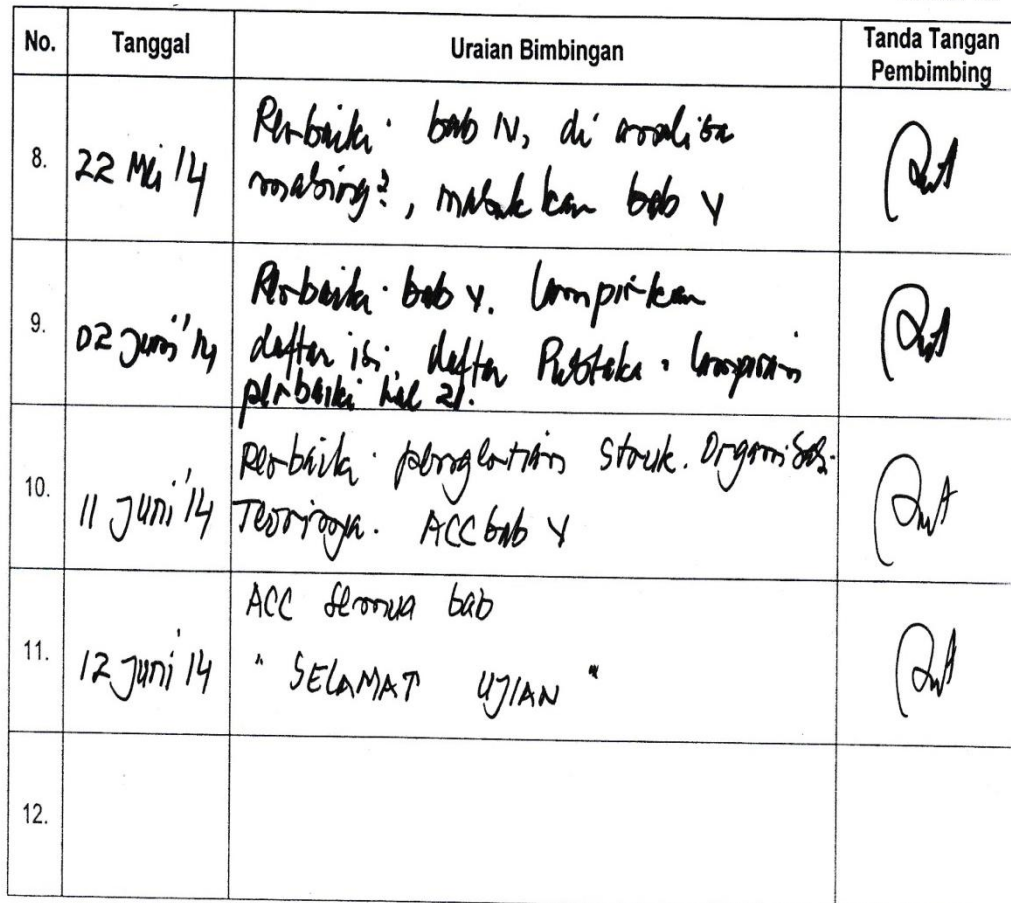 No. Tanggal Uraian Bimbingan Tanda Tangan Pembimbing
8. 22 Mei '14 Perbaiki bab IV, di analisa
masing², masukkan bab V
9. 02 Juni '14 Perbaiki bab V. Lampirkan
daftar isi, daftar Pustaka, lampiran
perbaiki hal 21.
10. 11 Juni '14 Perbaiki pengertian Struk. Organisasi
ACC bab V
11. 12 Juni '14 ACC semua bab
" SELAMAT UJIAN "
12.